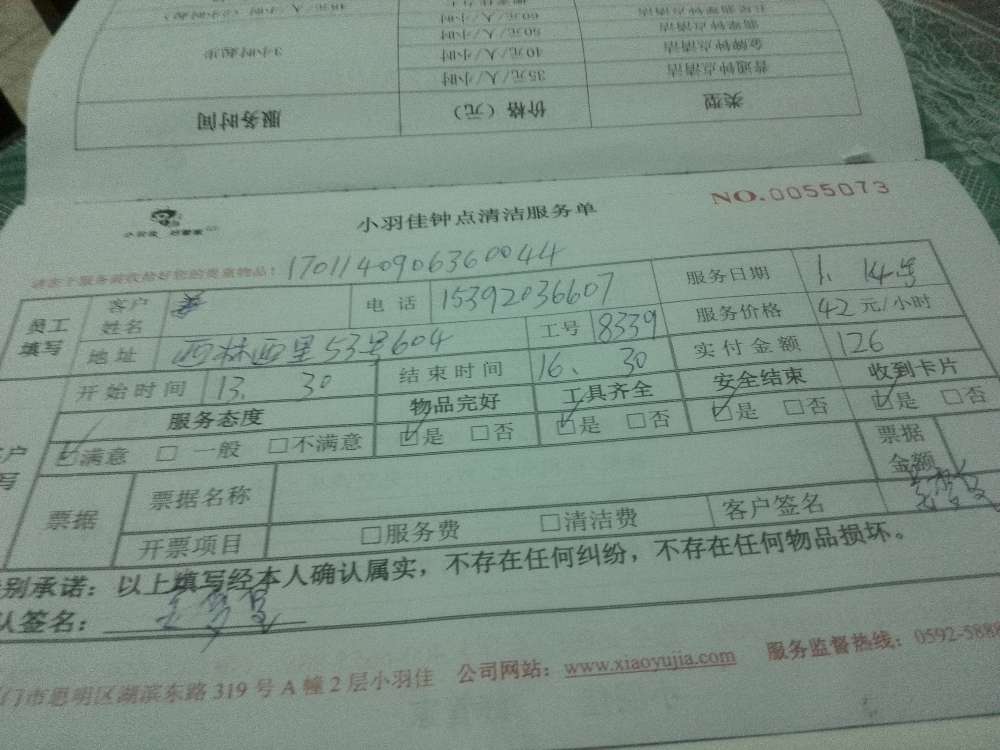 类型 价格（元） 服务时间
普通钟点清洁 35元/人/小时
金牌钟点清洁 40元/人/小时 3小时起步
翡翠钟点清洁 50元/人/小时
60元/人/小时
小羽佳钟点清洁服务单 NO.0055073
请在于服务前收拾好您的贵重物品！ 1701140906360044
员工填写 客户姓名 电话 15392036607 服务日期 1. 14号
地址 西林西里53号604 工号 8339 服务价格 42元/小时
开始时间 13. 30 结束时间 16、30 实付金额 126
服务态度 物品完好 工具齐全 安全结束 收到卡片
☑满意 □一般 □不满意 ☑是 □否 ☑是 □否 ☑是 □否 ☑是 □否
票据 票据名称 票据金额
开票项目 □服务费 □清洁费 客户签名
别承诺：以上填写经本人确认属实，不存在任何纠纷，不存在任何物品损坏。
认签名：
门市思明区湖滨东路319号A幢2层小羽佳 公司网站：www.xiaoyujia.com 服务监督热线：0592-5888